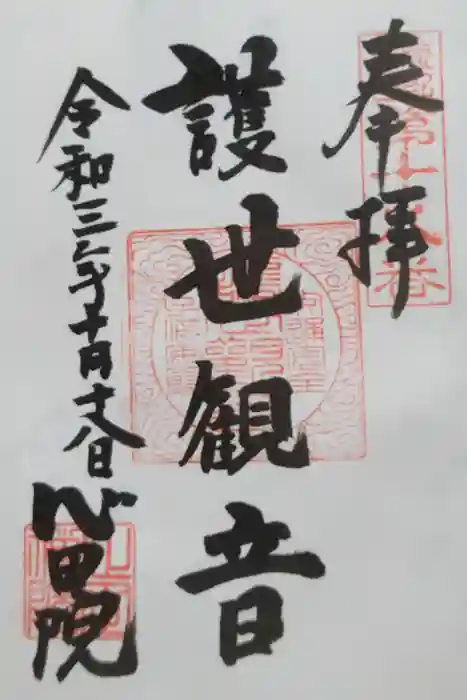 奉拝
護世観音
令和三年十月十八日
心田院